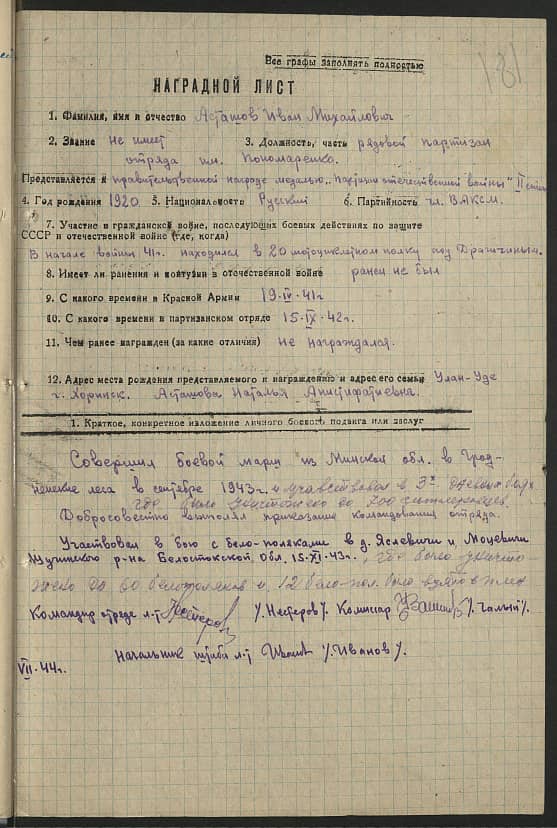 Все графы заполнять полностью
181
НАГРАДНОЙ ЛИСТ
1. Фамилия, имя и отчество Асташов Иван Михайлович
2. Звание не имеет 3. Должность, часть рядовой партизан
отряда им. Пономаренко.
Представляется к правительственной награде медалью „Партизан отечественной войны" II степ
4. Год рождения 1920 5. Национальность Русский 6. Партийность чл. ВЛКСМ.
7. Участие в гражданской войне, последующих боевых действиях по защите
СССР и отечественной войне (где, когда)
В начале войны 41г. находился в 20 мотоциклетном полку под
8. Имеет ли ранения и контузии в отечественной войне ранен не был
9. С какого времени в Красной Армии 19·IV·41г
10. С какого времени в партизанском отряде 15·IX·42г.
11. Чем ранее награжден (за какие отличия) не награждался.
12. Адрес места рождения представляемого к награждению и адрес его семьи Улан-Удэ
г. Хоринск. Асташова Наталья
1. Краткое, конкретное изложение личного боевого подвига или заслуг
Совершил боевой марш из Минской обл. в Грод-
ненские леса в сентябре 1943г. и участвовал в 3х дневных боях
где было уничтожено до 700 гитлеровцев.
Добросовестно выполнял приказание командования отряда.
Участвовал в бою с бело-поляками в д. Яслевичи и Моцевичи
Щучинского р-на Белостокской обл. 15·XI·43г., где было уничто-
жено до 60 белополяков и 12 бело-пол. было взято в плен
Командир отряда л-т /Нестеров/. Комиссар /Чалый/.
Начальник штаба л-т Иванов /Иванов/.
VII·44г.